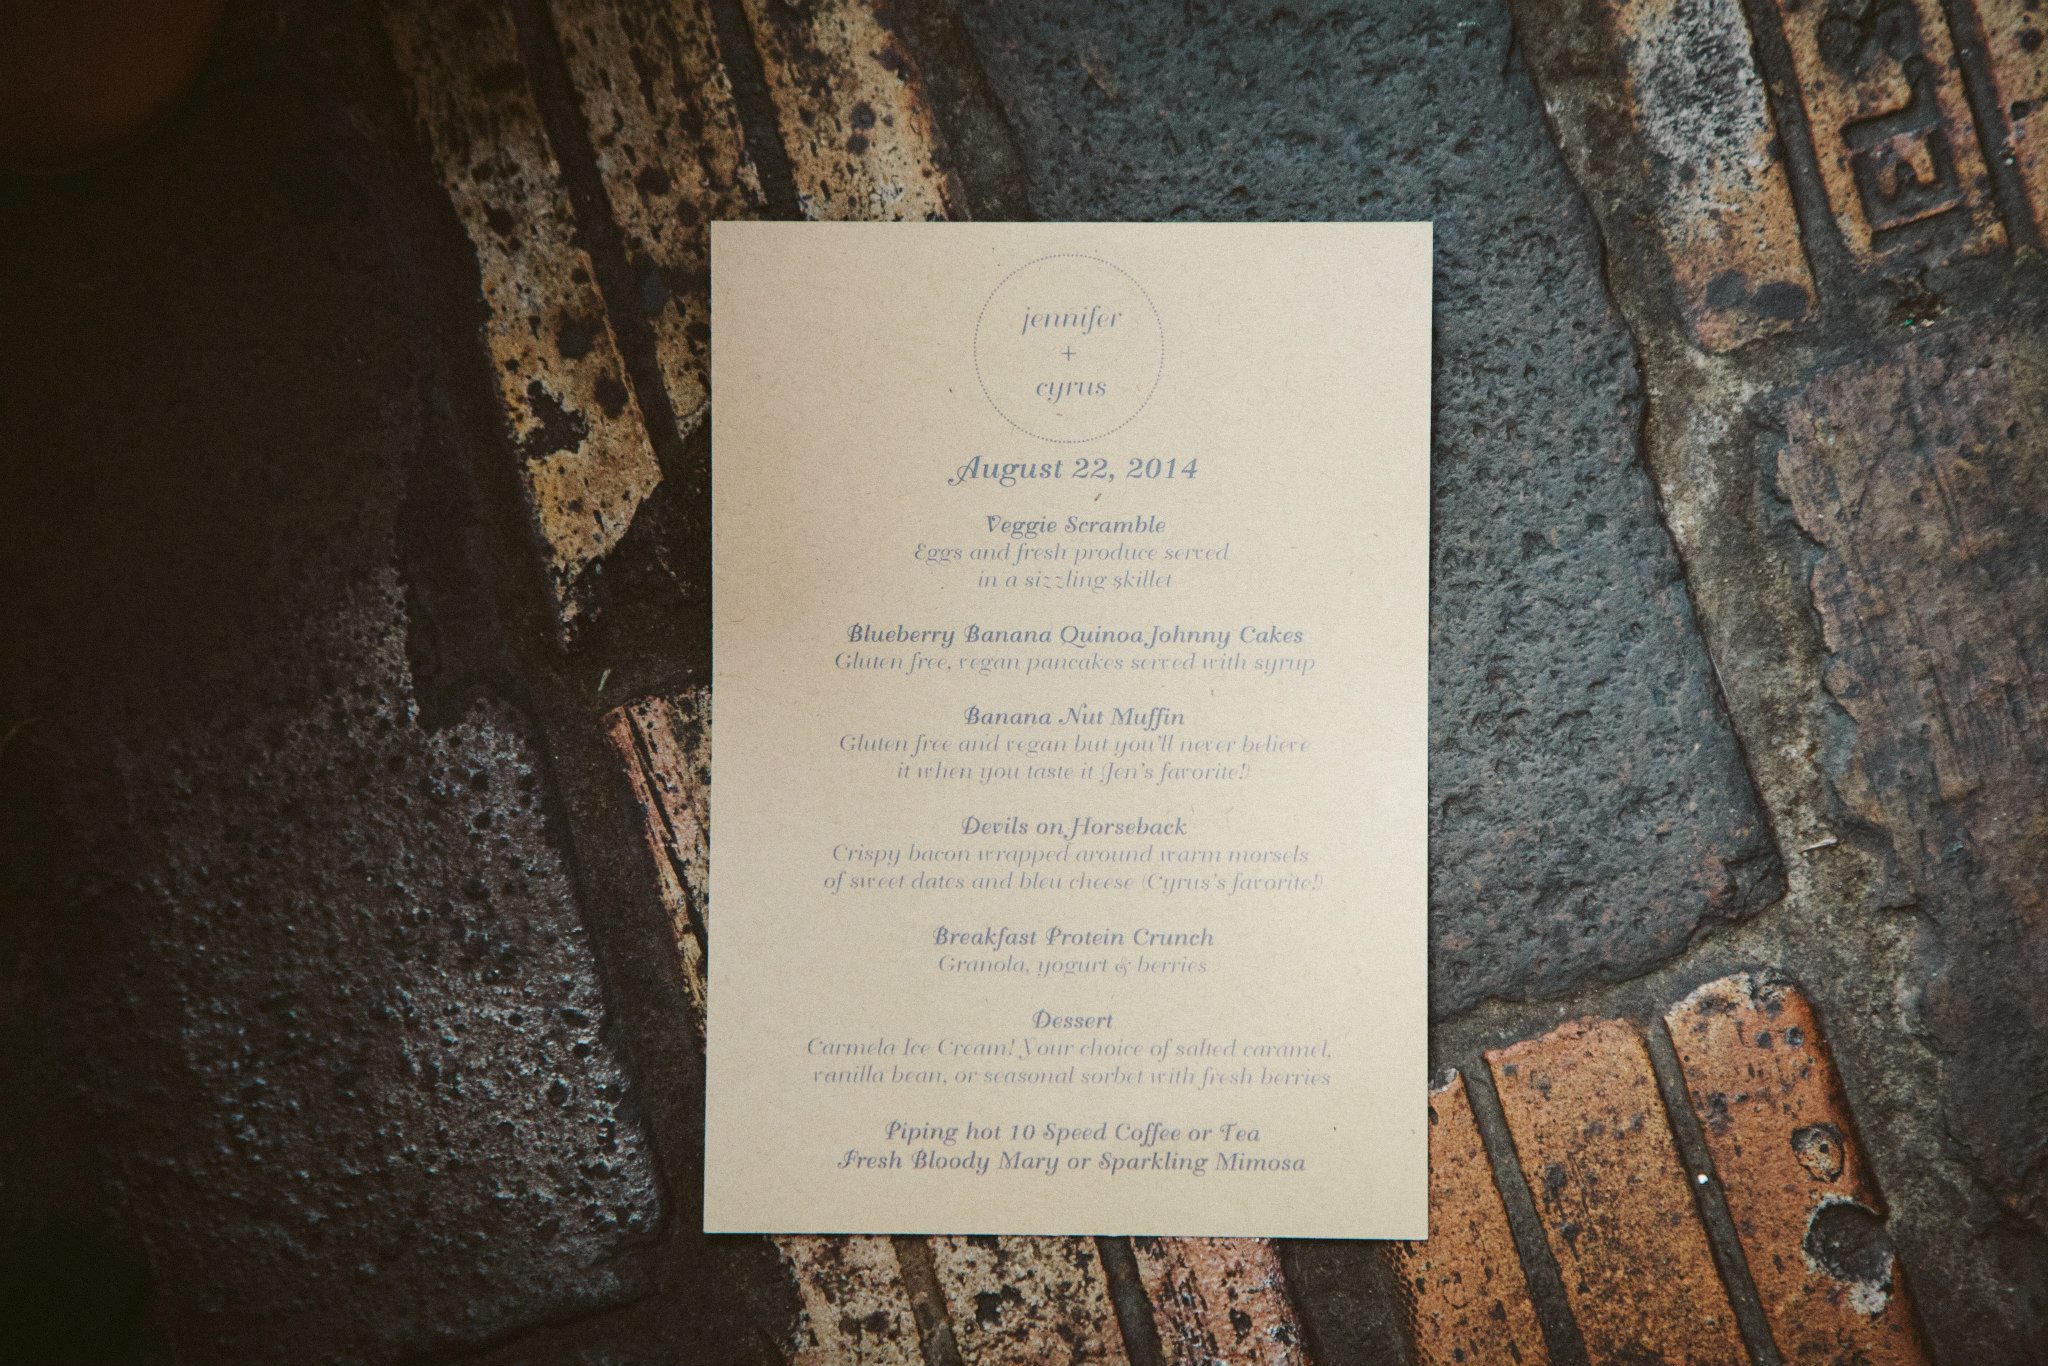 jennifer
+
cyrus
August 22, 2014
Veggie Scramble
Eggs and fresh produce served
in a sizzling skillet
Blueberry Banana Quinoa Johnny Cakes
Gluten free, vegan pancakes served with syrup
Banana Nut Muffin
Gluten free and vegan but you'll never believe
it when you taste it (Jen's favorite!)
Devils on Horseback
Crispy bacon wrapped around warm morsels
of sweet dates and bleu cheese (Cyrus's favorite!)
Breakfast Protein Crunch
Granola, yogurt & berries
Dessert
Carmela Ice Cream! Your choice of salted caramel,
vanilla bean, or seasonal sorbet with fresh berries
Piping hot 10 Speed Coffee or Tea
Fresh Bloody Mary or Sparkling Mimosa